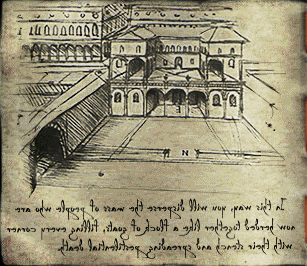 In this way, you will disperse the mass of people who are
now herded together like a flock of goats, filling every corner
with their stench and spreading pestilential death.